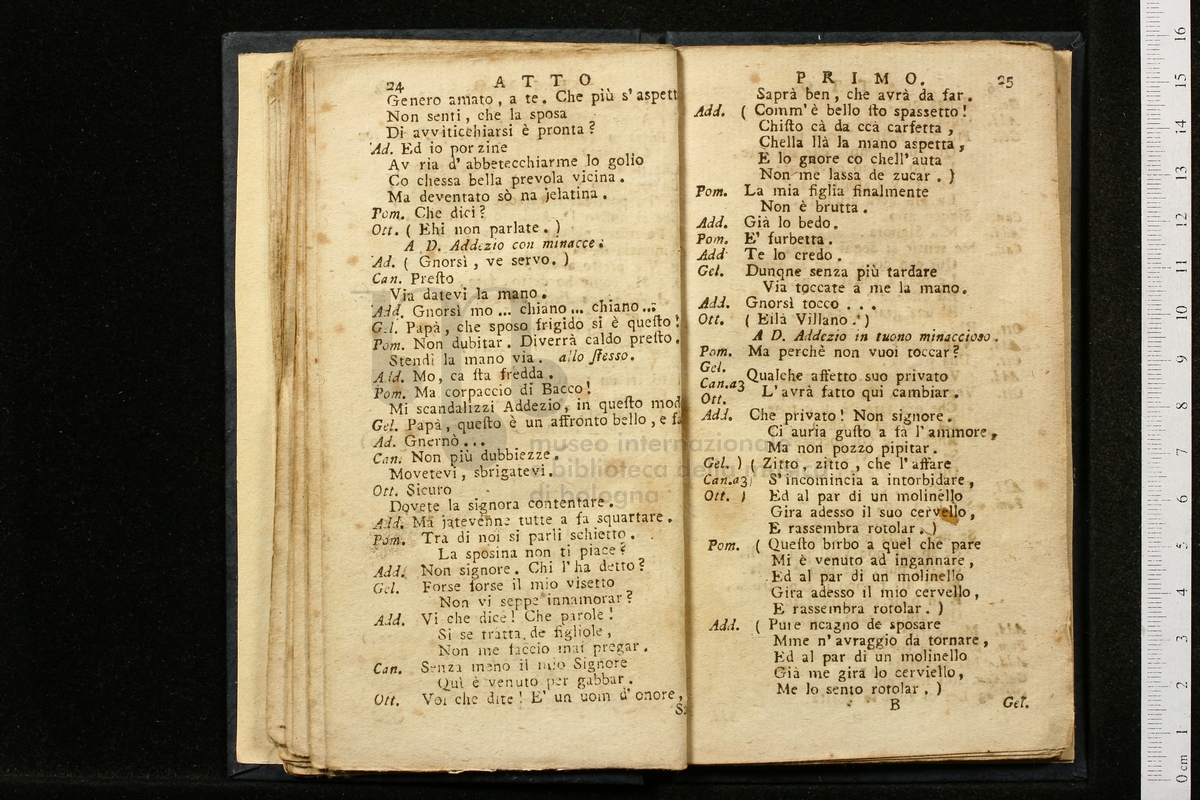 24 ATTO
Genero amato, a te. Che più s'aspett
Non senti, che la sposa
Di avviticchiarsi è pronta?
Ad. Ed io porzine
Av ria d'abbetecchiarme lo golio
Co chessa bella prevola vicina.
Ma deventato sò na jelatina.
Pom. Che dici?
Ott. ( Ehi non parlate. )
A D. Addezio con minacce.
Ad. ( Gnorsì, ve servo. )
Can. Presto
Via datevi la mano.
Add. Gnorsì mo ... chiano ... chiano ...
Gel. Papà, che sposo frigido si è questo!
Pom. Non dubitar. Diverrà caldo presto.
Stendi la mano via. allo stesso.
Add. Mo, ca sta fredda.
Pom. Ma corpaccio di Bacco!
Mi scandalizzi Addezio, in questo mod
Gel. Papà, questo è un affronto bello, e f
Ad. Gnernò...
Can. Non più dubbiezze.
Movetevi, sbrigatevi.
Ott. Sicuro
Dovete la signora contentare.
Add. Ma jatevenne tutte a fa squartare.
Pom. Tra di noi si parli schietto.
La sposina non ti piace?
Add. Non signore. Chi l'ha detto?
Gel. Forse forse il mio visetto
Non vi seppe innamorar?
Add. Vi che dice! Che parole!
Si se tratta de figliole,
Non me faccio mai pregar.
Can. Senza meno il mio Signore
Quì è venuto per gabbar.
Ott. Voi che dite! E' un uom d'onore,
Sa
PRIMO. 25
Saprà ben, che avrà da far.
Add. ( Comm'è bello sto spassetto!
Chisto cà da cca carfetta,
Chella llà la mano aspetta,
E lo gnore co chell'auta
Non me lassa de zucar. )
Pom. La mia figlia finalmente
Non è brutta.
Add. Già lo bedo.
Pom. E' furbetta.
Add Te lo credo.
Gel. Dunqne senza più tardare
Via toccate a me la mano.
Add. Gnorsì tocco ...
Ott. ( Eilà Villano. )
A D. Addezio in tuono minaccioso.
Pom. Ma perchè non vuoi toccar?
Gel.
Can.a3 Qualche affetto suo privato
Ott. L'avrà fatto qui cambiar.
Add. Che privato! Non signore.
Ci auria gusto a fa l'ammore,
Ma non pozzo pipitar.
Gel. ) ( Zitto, zitto, che l'affare
Can.a3) S'incomincia a intorbidare,
Ott. ) Ed al par di un molinello
Gira adesso il suo cervello,
E rassembra rotolar. )
Pom. ( Questo birbo a quel che pare
Mi è venuto ad ingannare,
Ed al par di un molinello
Gira adesso il mio cervello,
E rassembra rotolar. )
Add. ( Pure ncagno de sposare
Mme n'avraggio da tornare,
Ed al par di un molinello
Già me gira lo cerviello,
Me lo sento rotolar. )
B Gel.
museo internazionale
biblioteca della musica
di bologna
0 cm 1 2 3 4 5 6 7 8 9 10 11 12 13 14 15 16